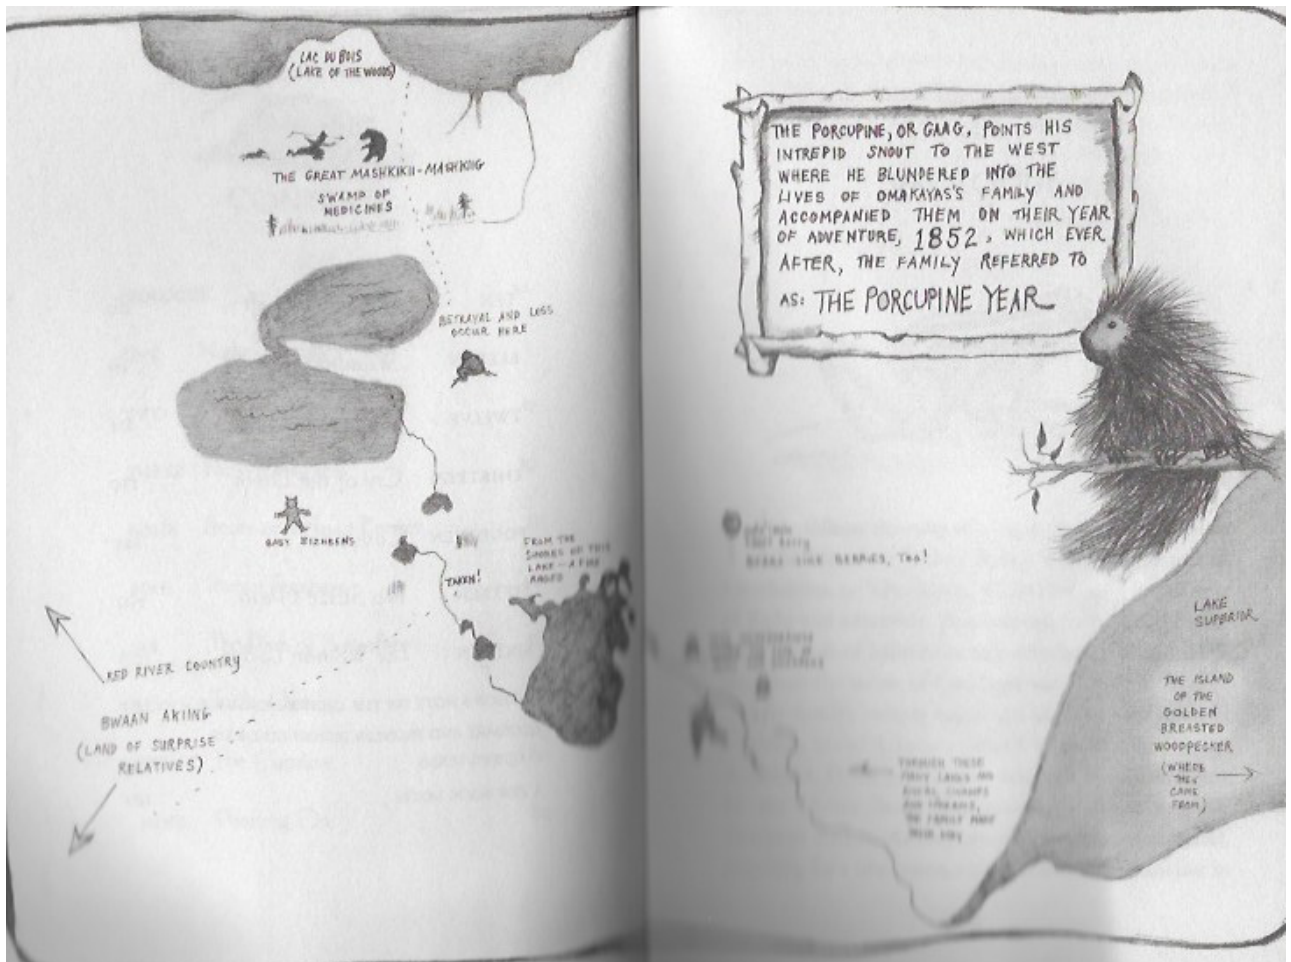 LAC DU BOIS
(LAKE OF THE WOODS)
THE GREAT MASHKIKII-MASHKIIG
SWAMP OF
MEDICINES
BETRAYAL AND LOSS
OCCUR HERE
BABY BIZHEENS
TAKEN!
FROM THE
SHORES OF THIS
LAKE - A FIRE
RAGED
RED RIVER COUNTRY
BWAAN AKIING
(LAND OF SURPRISE
RELATIVES)
THE PORCUPINE, OR GAAG, POINTS HIS
INTREPID SNOUT TO THE WEST
WHERE HE BLUNDERED INTO THE
LIVES OF OMAKAYAS'S FAMILY AND
ACCOMPANIED THEM ON THEIR YEAR
OF ADVENTURE, 1852, WHICH EVER
AFTER, THE FAMILY REFERRED TO
AS: THE PORCUPINE YEAR
BEARS LIKE BERRIES, TOO!
THROUGH THESE
MANY LAKES AND
THE FAMILY MADE
THEIR WAY
LAKE
SUPERIOR
THE ISLAND
OF THE
GOLDEN
BREASTED
WOODPECKER
(WHERE
THEY
CAME
FROM)